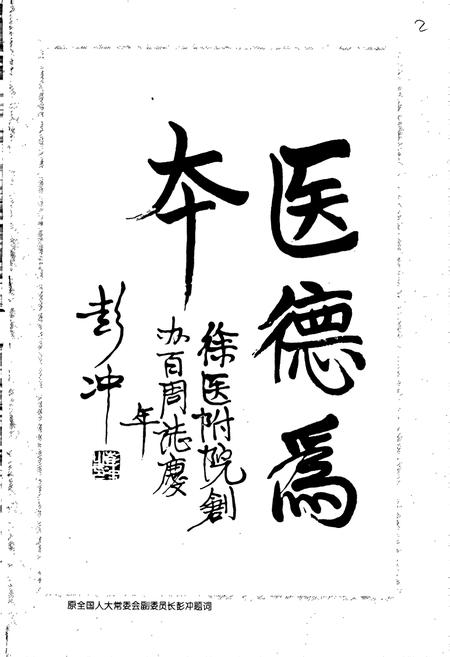 2
医德為
本
徐医附院創
办百周誌慶
年
彭冲
原全国人大常委会副委员长彭冲题词